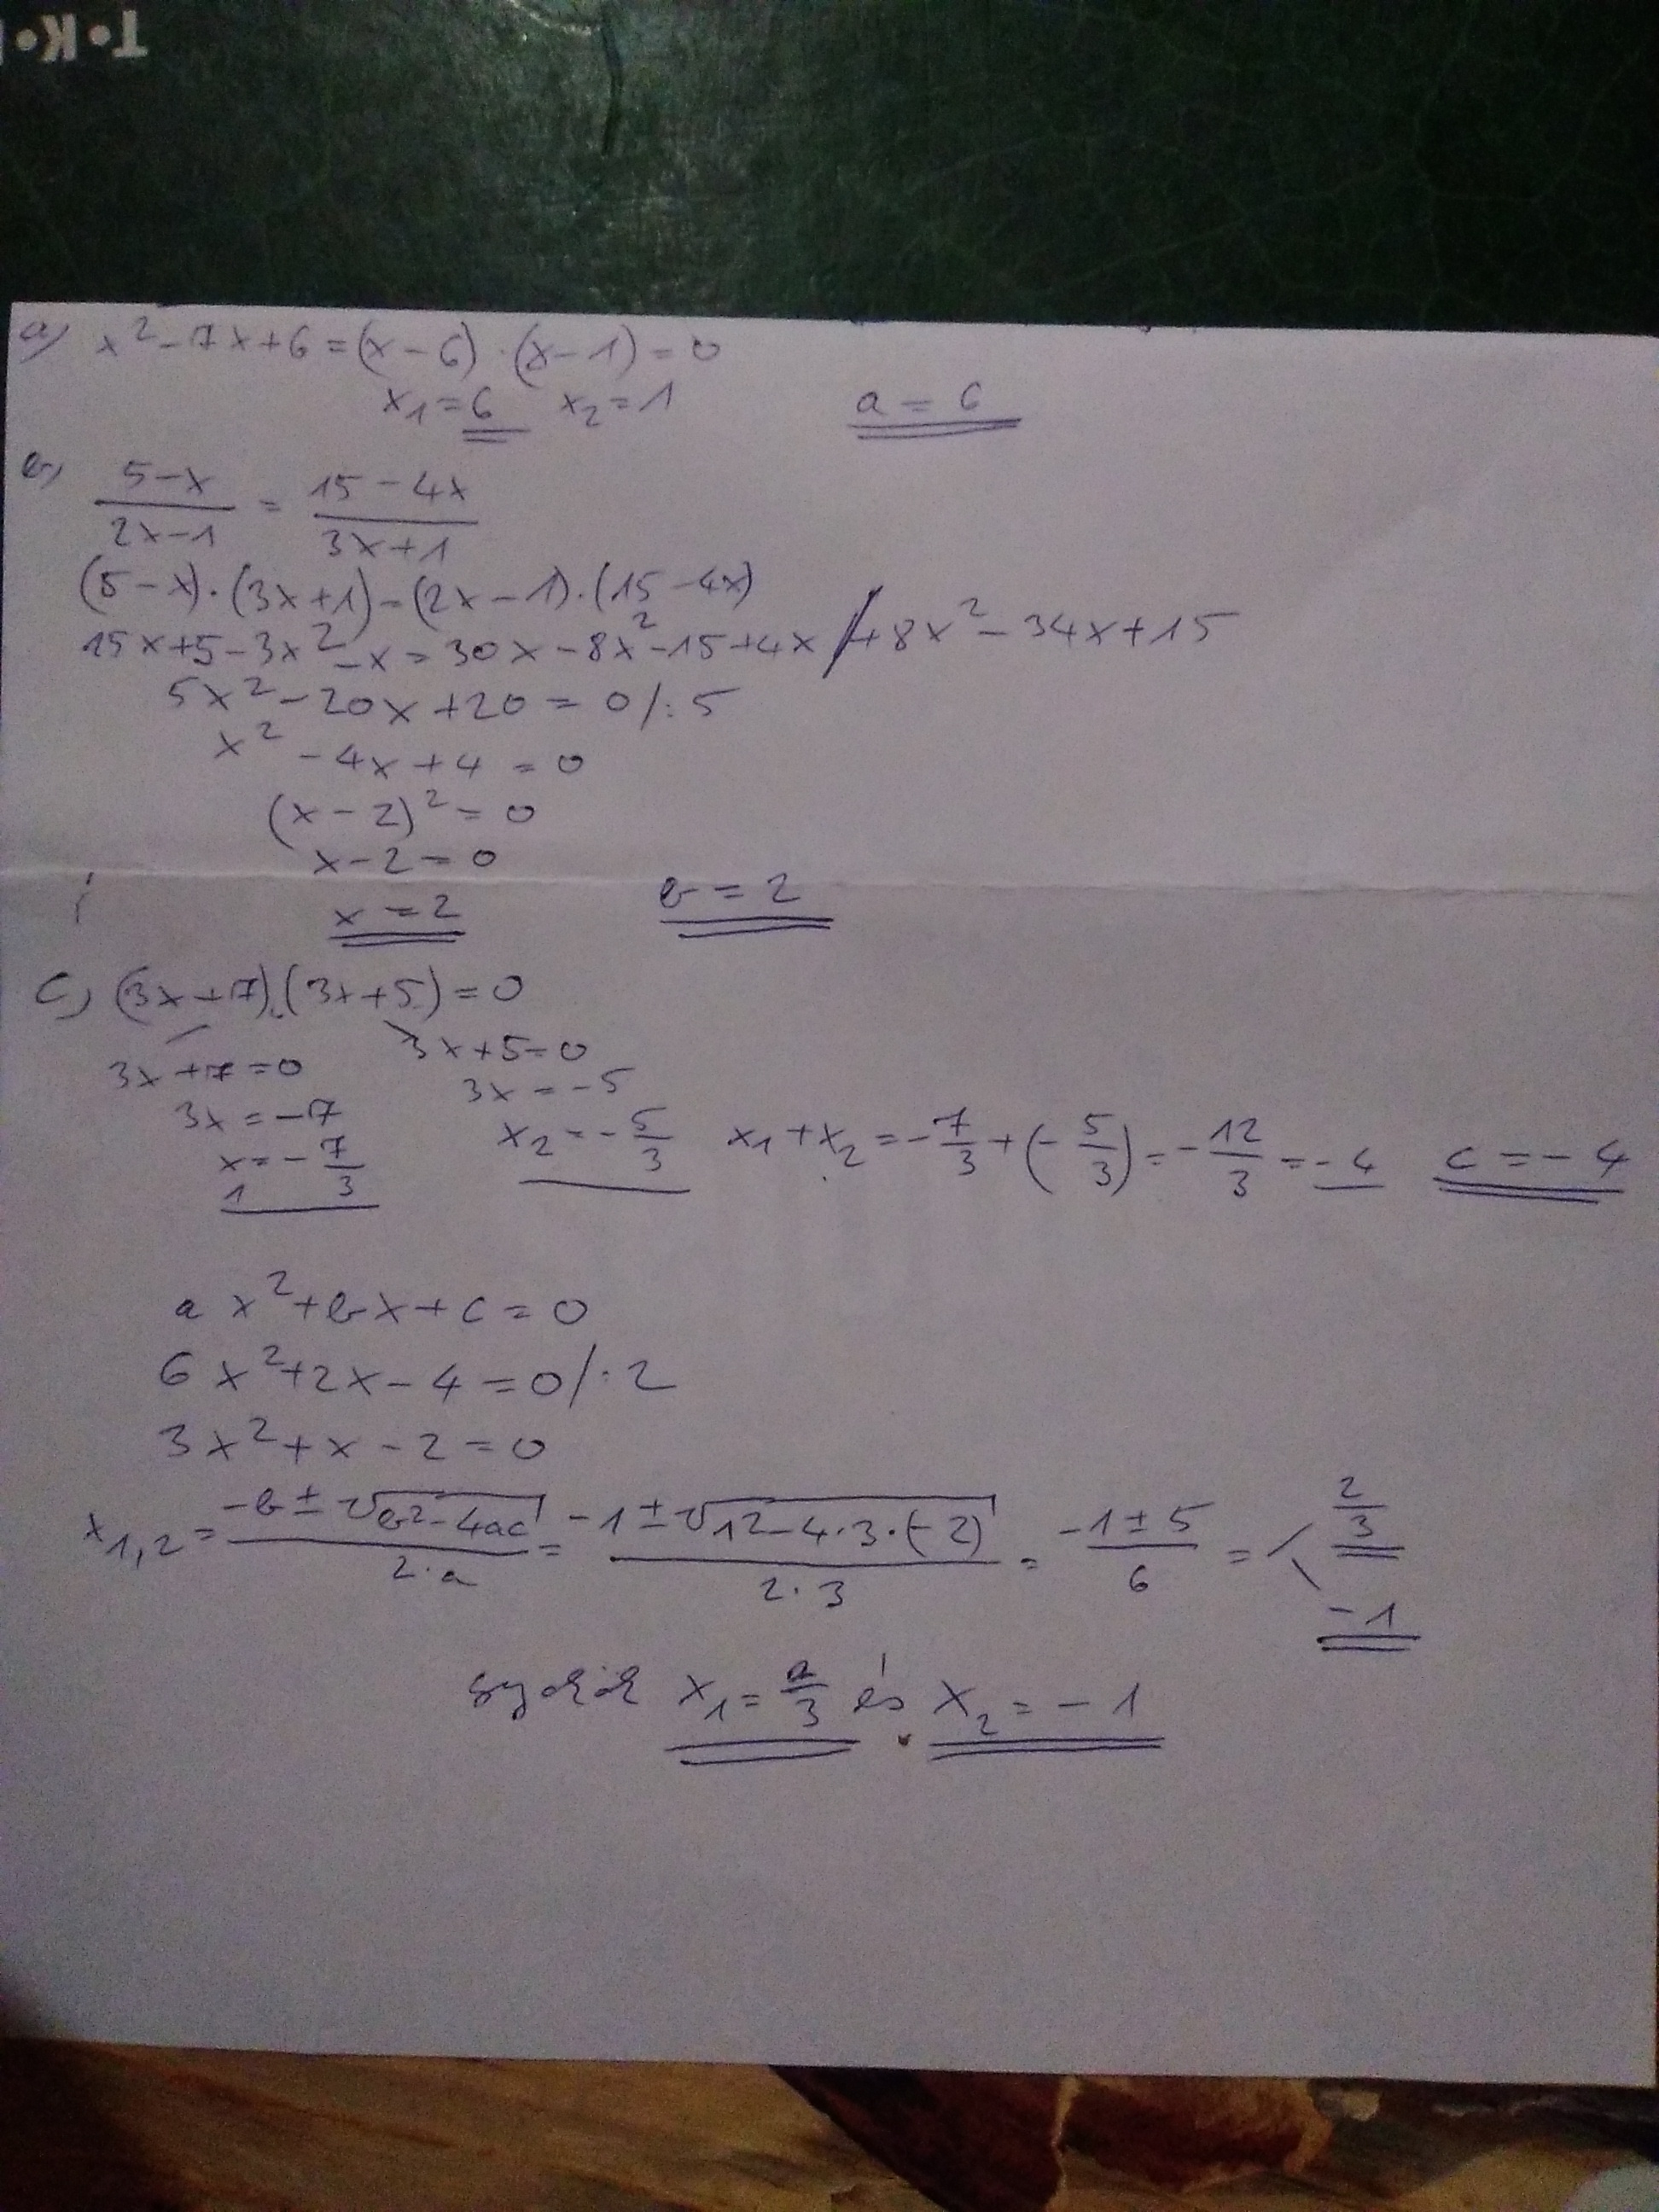 T•K•
a) x² - 7x + 6 = (x - 6) · (x - 1) = 0
x₁ = 6 x₂ = 1 a = 6
b) (5-x)/(2x-1) = (15-4x)/(3x+1)
(5-x)·(3x+1) = (2x-1)·(15-4x)
15x+5-3x²-x = 30x-8x²-15+4x /+8x²-34x+15
5x²-20x+20 = 0 /:5
x²-4x+4 = 0
(x-2)² = 0
x-2 = 0
x = 2 b = 2
c) (3x+7).(3x+5) = 0
3x+7 = 0 3x+5 = 0
3x = -7 3x = -5
x₁ = -7/3 x₂ = -5/3 x₁+x₂ = -7/3+(-5/3) = -12/3 = -4 c = -4
a x²+bx+c = 0
6x²+2x-4 = 0 /:2
3x²+x-2 = 0
x₁,₂ = (-b±√(b²-4ac))/(2·a) = (-1±√(1²-4·3·(-2)))/(2·3) = (-1±5)/6 = < 2/3
-1
gyökök x₁ = 2/3 és x₂ = -1